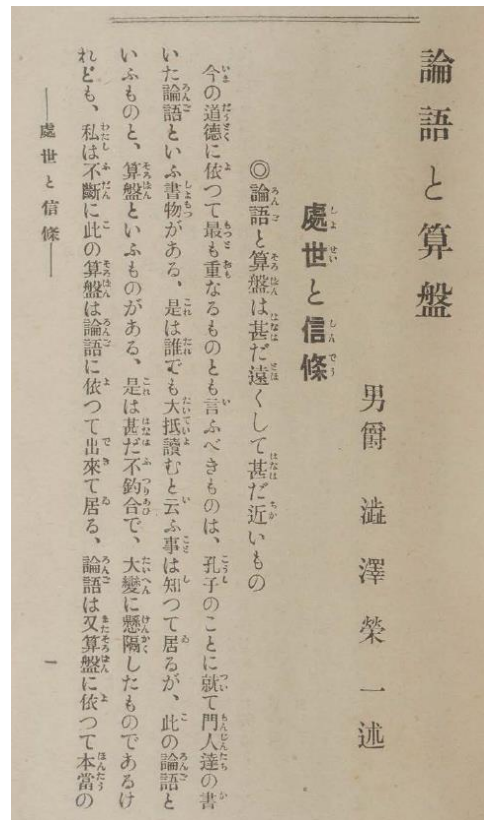 論語と算盤
男爵 澁澤榮一述
處世と信條
◎論語と算盤は甚だ遠くして甚だ近いもの
今の道德に依つて最も重なるものとも言ふべきものは、孔子のことに就て門人達の書
いた論語といふ書物がある、是は誰でも大抵讀むと云ふ事は知つて居るが、此の論語と
いふものと、算盤といふものがある、是は甚だ不釣合で、大變に懸隔したものであるけ
れども、私は不斷に此の算盤は論語に依つて出來て居る、論語は又算盤に依つて本當の
――處世と信條――
一